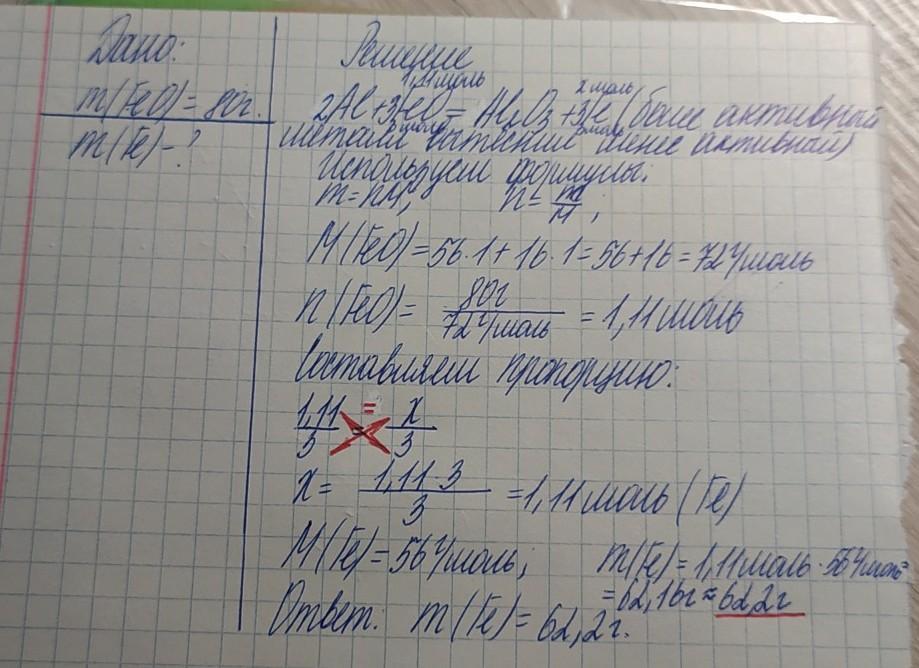 Дано:
m(FeO)=80г.
m(Fe)-?
Решение
1,11 моль х моль
2Al+3FeO=Al₂O₃+3Fe (более активный
металл вытеснил менее активный)
3 моль 3 моль
Используем формулы:
m=nM; n=m/M;
M(FeO)=56·1+16·1=56+16=72 г/моль
n(FeO)= 80г/72 г/моль =1,11 моль
Составляем пропорцию:
1,11/3 = x/3
x= 1,11·3/3 =1,11 моль (Fe)
M(Fe)=56 г/моль; m(Fe)=1,11 моль·56 г/моль=
=62,16г≈62,2г
Ответ: m(Fe)=62,2г.